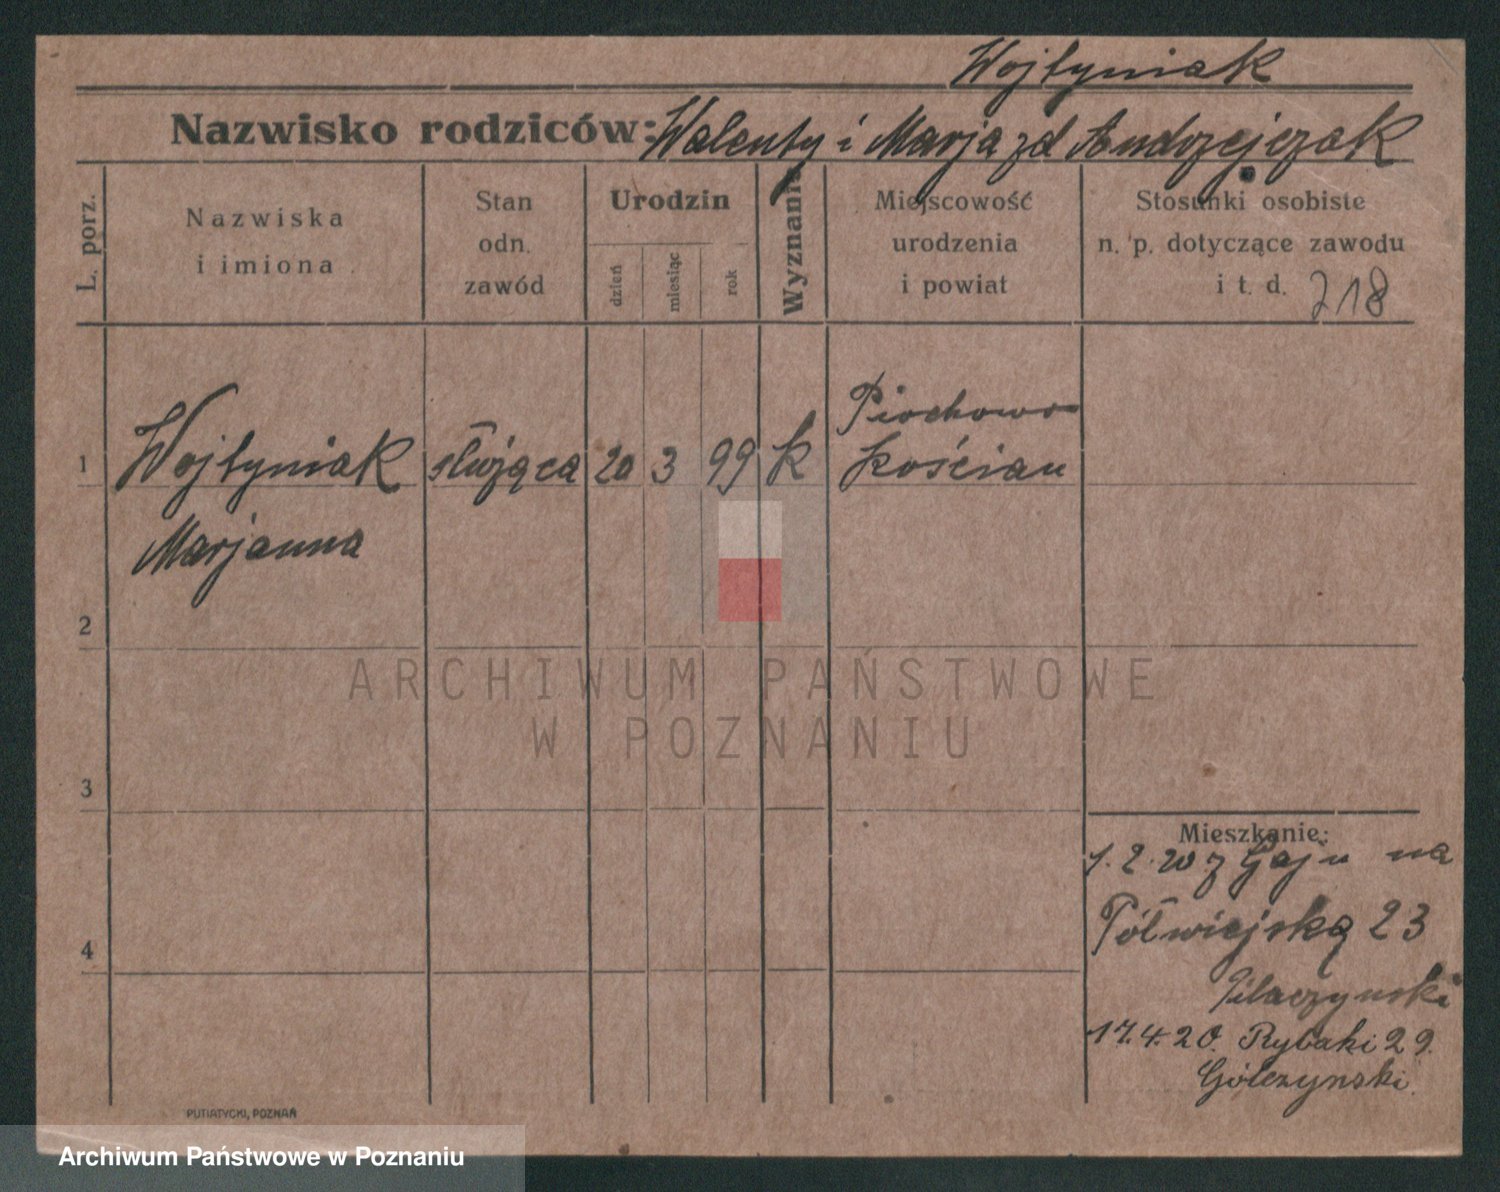 Wojtyniak
Nazwisko rodziców: Walenty i Marja zd Andrzejczak
L. porz.
Nazwiska
i imiona
Stan
odn.
zawód
Urodzin
dzień
miesiąc
rok
Wyznanie
Miejscowość
urodzenia
i powiat
Stosunki osobiste
n. p. dotyczące zawodu
i t. d. 718
1 Wojtyniak służąca 20 3 99 k Piechowo
Kościan
Marjanna
2
3
4
Mieszkanie:
1.2.20 z Gaju na
Półwiejską 23
17.4.20. Rybaki 29.
Gólczynski
PUTIATYCKI, POZNAŃ
ARCHIWUM PAŃSTWOWE
W POZNANIU
Archiwum Państwowe w Poznaniu